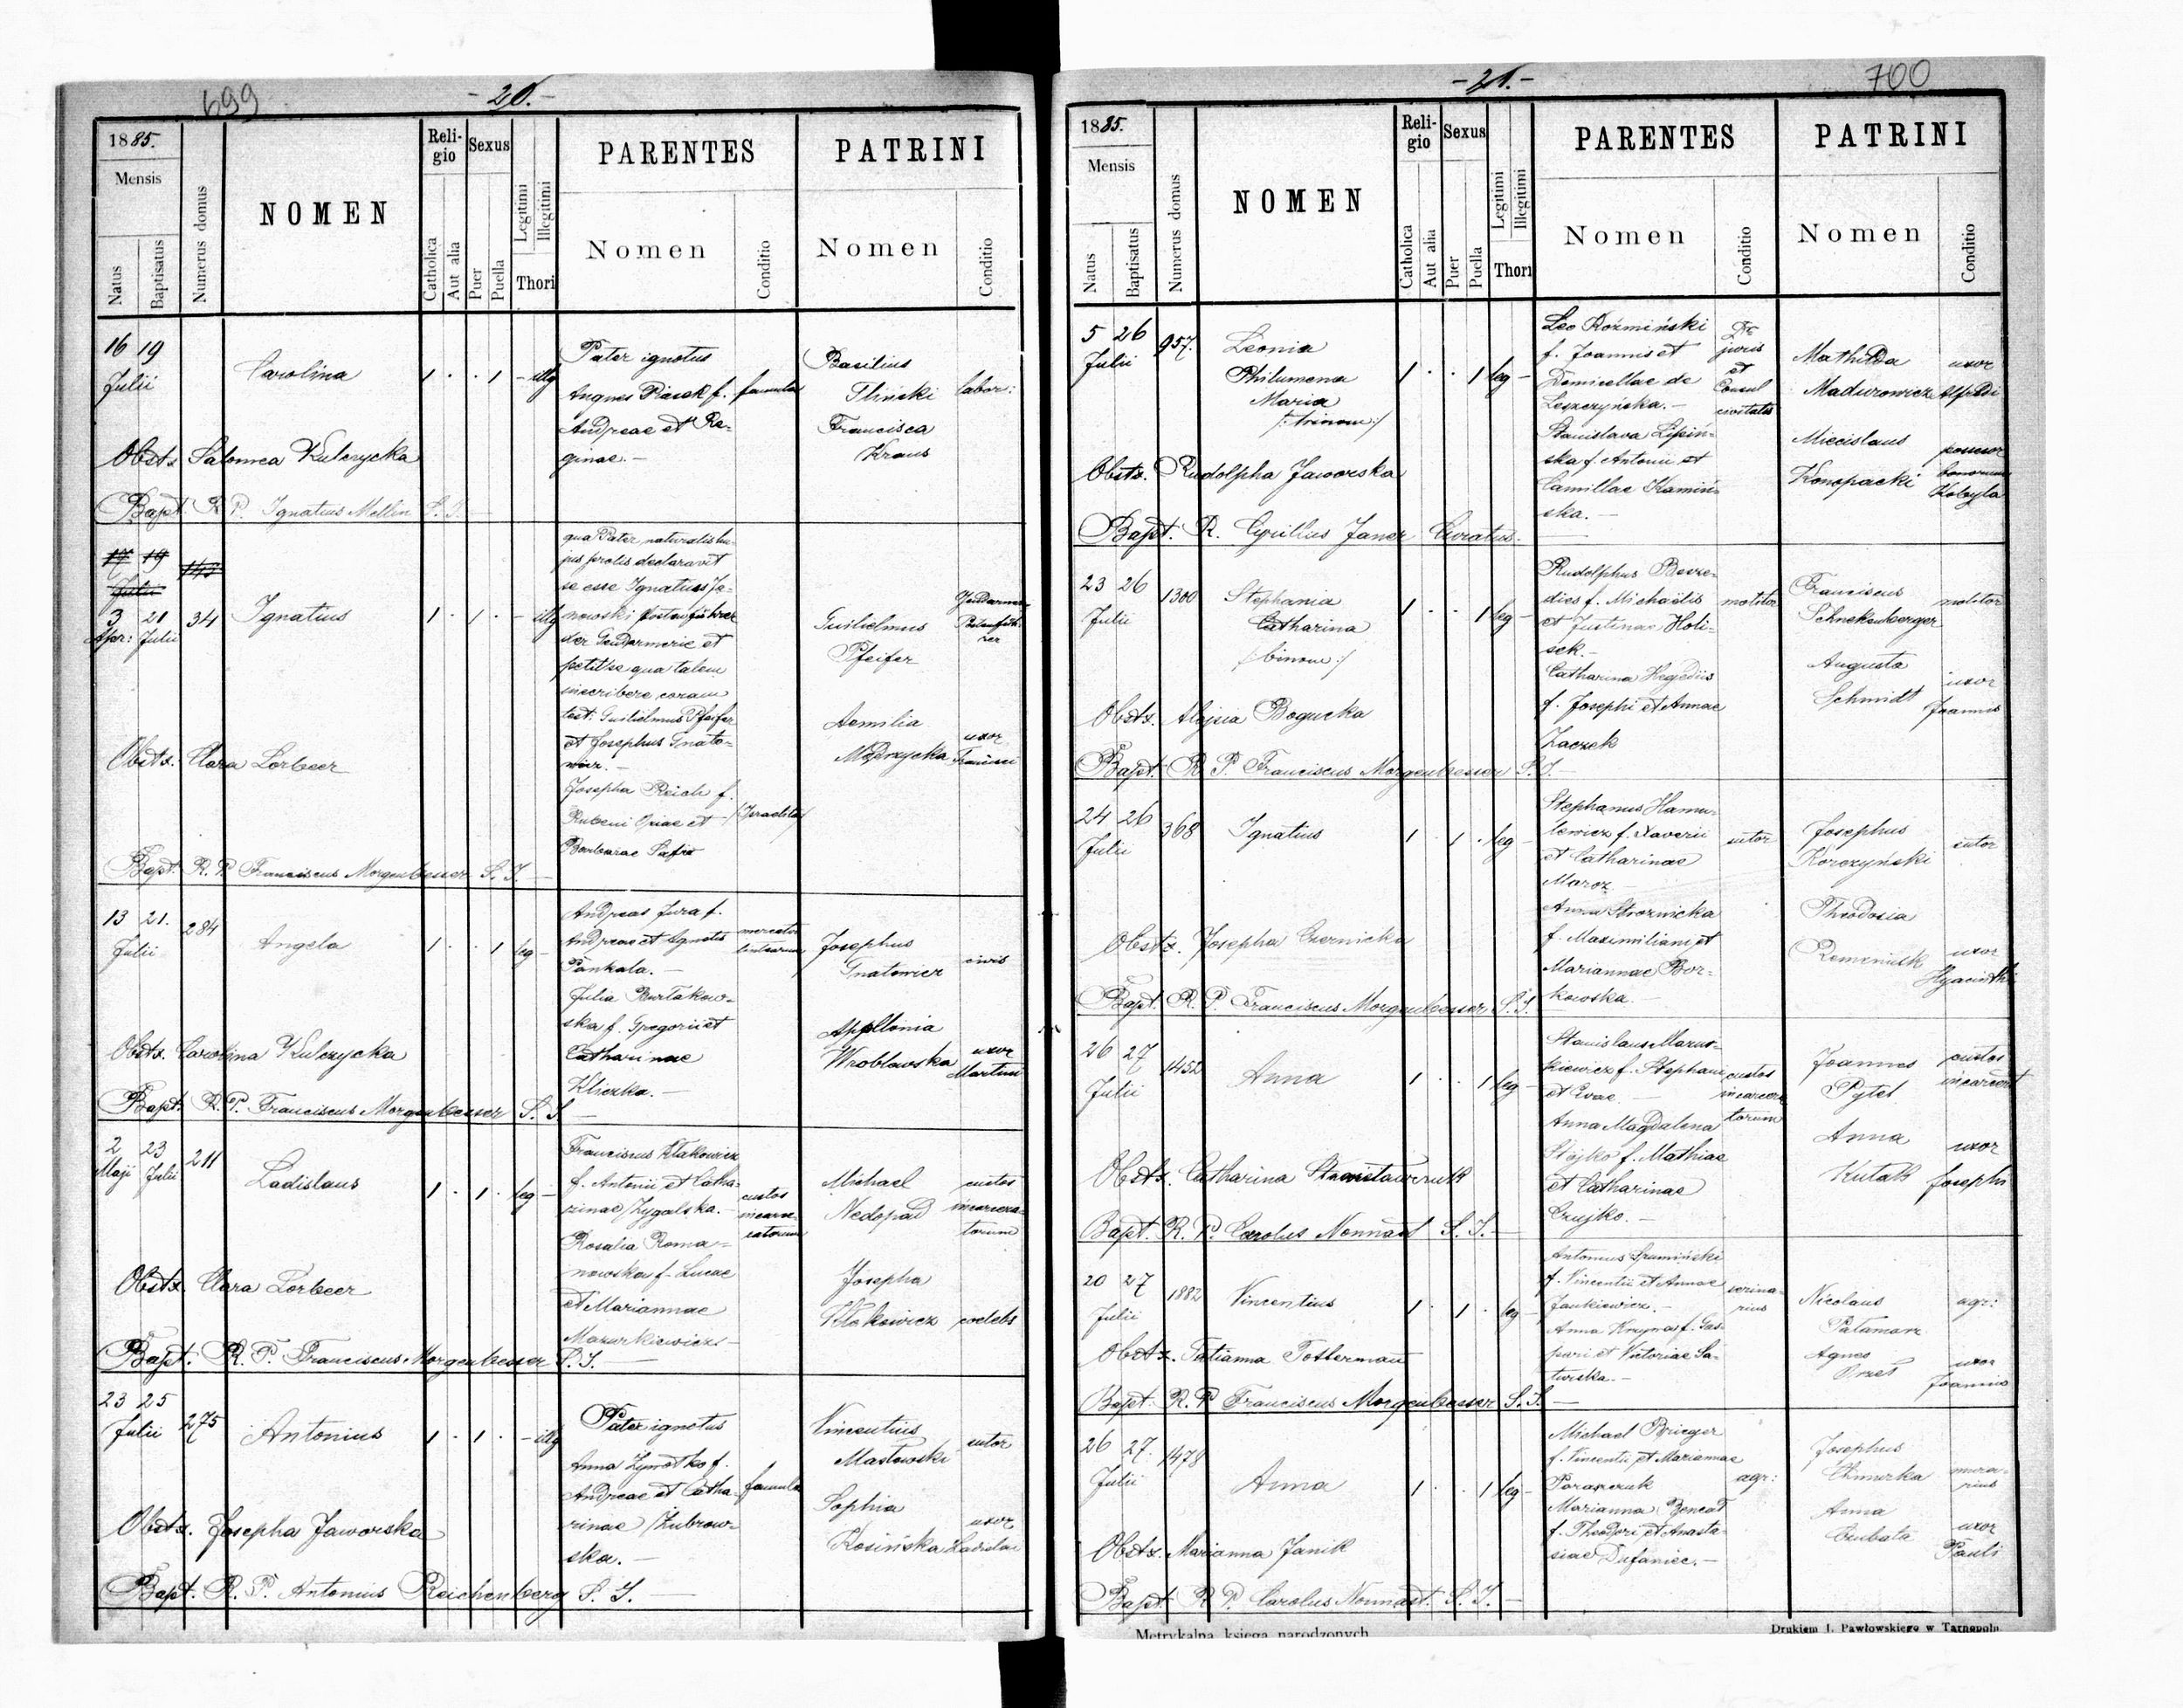 699
- 20. -
1885.
Mensis
Natus
Baptisatus
Numerus domus
NOMEN
Reli-
gio
Catholica
Aut alia
Sexus
Puer
Puella
Legitimi
Illegitimi
Thori
PARENTES
Nomen
Conditio
PATRINI
Nomen
Conditio
16 19
Julii
Carolina
1 . . 1 - illg
Pater ignotus
Agnes Piasek f. famula
Andreae et Re-
ginae. -
Basilius
Tliński labor:
Francisca
Kraus
Obstx. Salomea Kulczycka
Bapt. R. P. Ignatius Mellin S. J.
17 19
Julii
143
3 21
Apr: Julii
34
Ignatius
1 . 1 . - illg
qua Pater naturalis hu-
jus prolis declaravit
se esse Ignatius Ja-
nowski Postenführer
der Gendarmerie et
petiit se qua talem
inscribere coram
test: Guilielmus Pfeifer
et Josephus Gnato-
wicz. -
Josepha Reich f.
Rubeni Opiae et /Israelita/
Barbarae Safir
Guilielmus
Pfeifer
Gendarmer-
Postenfüh-
rer
Aemilia
Mędrzycka
uxor
Francisci
Obstx. Clara Lorbeer
Bapt. R. P. Franciscus Morgenbesser S. J. -
13 21.
Julii
284
Angela
1 . . 1 leg -
Andreas Jura f.
Andreae et Agnetis
Pankala. -
mercator
Julia Burtakow-
ska f. Gregorii et
Catharinae
Kliczka. -
Josephus
Gnatowicz civis
Appolonia
Wroblowska
uxor
Martini
Obstx. Carolina Kulczycka
Bapt. R. P. Franciscus Morgenbesser S. J. -
2 23
Maji Julii
211
Ladislaus
1 . 1 . leg -
Franciscus Kłakowicz
f. Antonii et Catha-
rinae Zygalska. -
custos
incarce-
ratorum
Rosalia Roma-
nowska f. Lucae
et Mariannae
Mazurkiewicz. -
Michael
Nedopad
custos
incarcera-
torum
Josepha
Kłakowicz coelebs
Obstx. Clara Lorbeer
Bapt. R. P. Franciscus Morgenbesser S. J. -
23 25
Julii
275
Antonius
1 . 1 . - illg
Pater ignotus
Anna Zywotko f.
Andreae et Catha- famula
rinae Zubrow-
ska. -
Vincentius
Masłowski sutor
Sophia
Kosińska
uxor
Ladislai
Obstx. Josepha Jaworska
Bapt. R. P. Antonius Reichenberg S. J. -
- 21. -
700
1885.
Mensis
Natus
Baptisatus
Numerus domus
NOMEN
Reli-
gio
Catholica
Aut alia
Sexus
Puer
Puella
Legitimi
Illegitimi
Thori
PARENTES
Nomen
Conditio
PATRINI
Nomen
Conditio
5 26
Julii
957.
Leonia
Philumena
Maria
/:trinom:/
1 . . 1 leg -
Leo Koźmiński
f. Joannis et
Domicellae de
Leszczyńska. -
Dr
juris
et
Consul
civitatis
Stanislava Lipiń-
ska f. Antonii et
Camillae Kamiń-
ska. -
Mathilda
Madurowicz
uxor
Alfredi
Miecislaus
Konopacki
possessor
bonorum
Kobyla
Obstx. Rudolpha Jaworska
Bapt. R. Cyrillus Janer Curatus. -
23 26
Julii
1300
Stephania
Catharina
/:binom:/
1 . . 1 leg -
Rudolphus Bevre-
dies f. Michaelis molitor
et Justinae Holi-
sek. -
Catharina Hegediis
f. Josephi et Annae
Zaczek
Franciscus
Schnekenberger
molitor
Augusta
Schmidt
uxor
Joannis
Obstx. Alojsia Bogucka
Bapt. R. P. Franciscus Morgenbesser S. J. -
24 26
Julii
368
Ignatius
1 . 1 . leg -
Stephanus Hamu-
lewicz f. Xaverii sutor
et Catharinae
Maroz -
Anna Stroznicka
f. Maximiliani et
Mariannae Bor-
kowska. -
Josephus
Korczyński sutor
Theodosia
Romeniuk
uxor
Hyacinthi
Obstx. Josepha Czernicka
Bapt. R. P. Franciscus Morgenbesser S. J.
26 27
Julii
1452
Anna
1 . . 1 leg -
Stanislaus Marus-
kiewicz f. Stephani
et Evae. -
custos
incarcera
torum
Anna Magdalena
Stojko f. Mathiae
et Catharinae
Czujko. -
Joannes
Pytel
custos
incarcerat
Anna
Kutak
uxor
Josephi
Obstx. Catharina
Bapt. R. P. Carolus Nonnast S. J. -
20 27
Julii
1882
Vincentius
1 . 1 . leg -
Antonius Srumiński
f. Vincentii et Annae
Jankiewicz. -
Anna Krzyna f. Gas-
pari et Victoriae Sa-
turska. -
Nicolaus
Patamarz
agr:
Agnes
uxor
Joannis
Obstx. Tatianna Tosterman
Bapt. R. P. Franciscus Morgenbesser S. J. -
26 27.
Julii
1478
Anna
1 . . 1 leg -
Michael Brieger
f. Vincentii et Mariannae
Paraszczuk agr:
Marianna Bencat
f. Theodori et Anasta-
siae Dufaniec. -
Josephus
Chmurka
Anna
Czubata
uxor
Pauli
Obstx. Marianna Janik
Bapt. R. P. Carolus Nonnast. S. J. -
Metrykalna księga narodzonych
Drukiem I. Pawłowskiego w Tarnopolu.